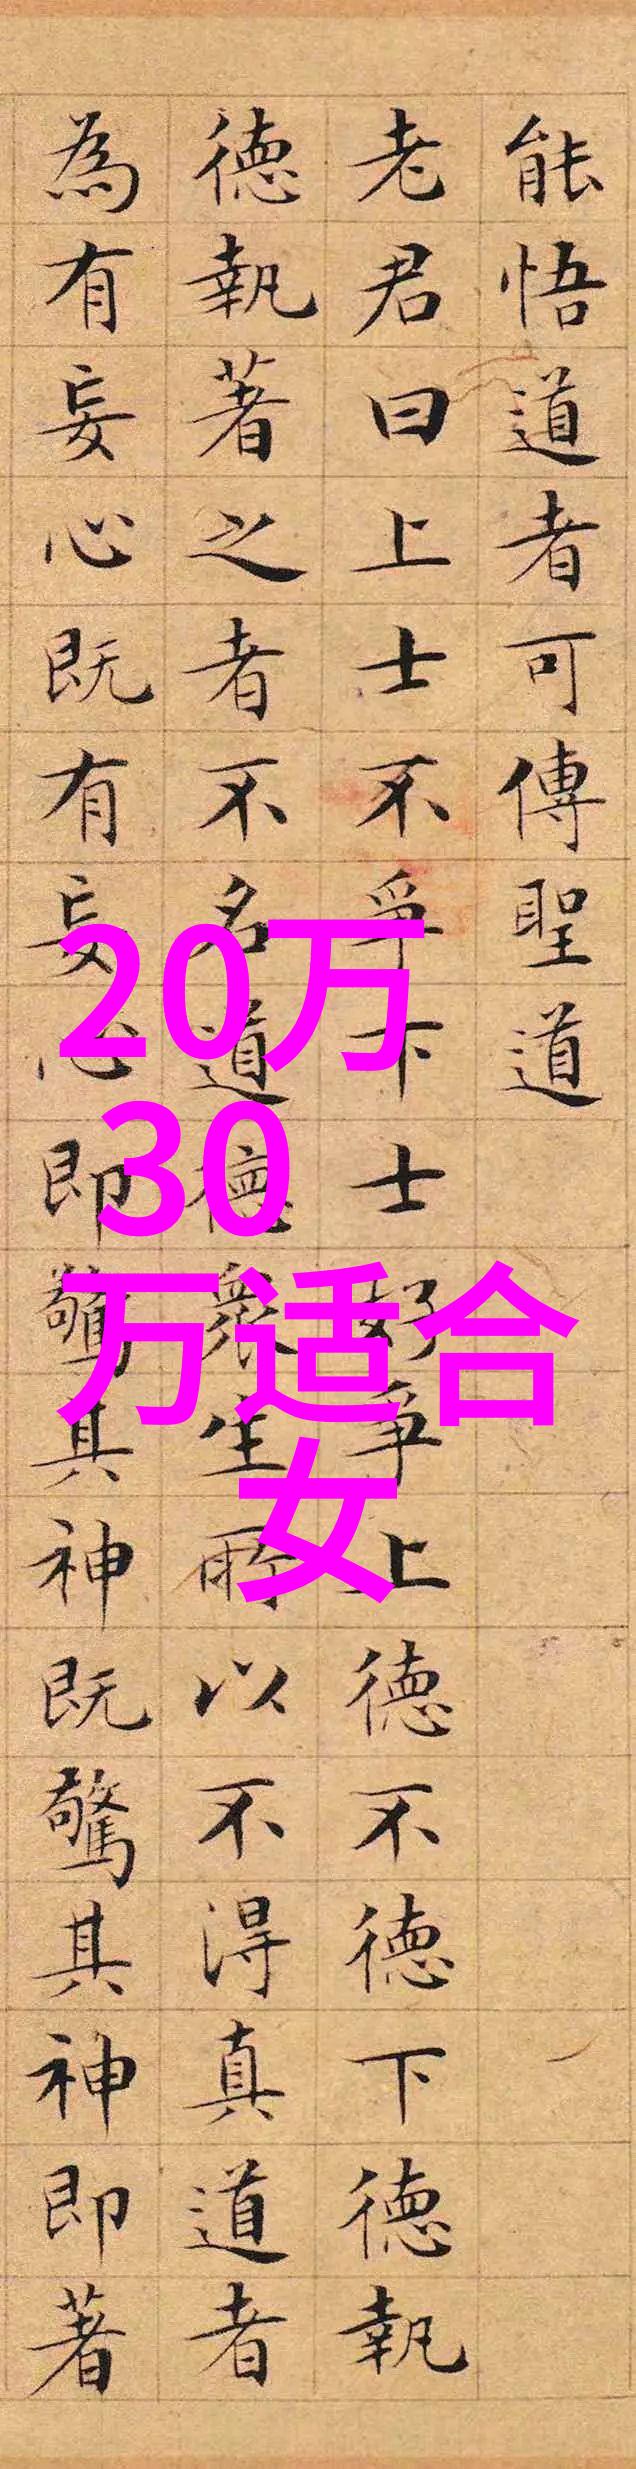 能悟道者可傳聖道
老君曰上士不爭下士好爭上德不德下德執
德執著之者不名道德衆生所以不得真道者
為有妄心既有妄心即驚其神既驚其神即著
20万
30
万适合
女